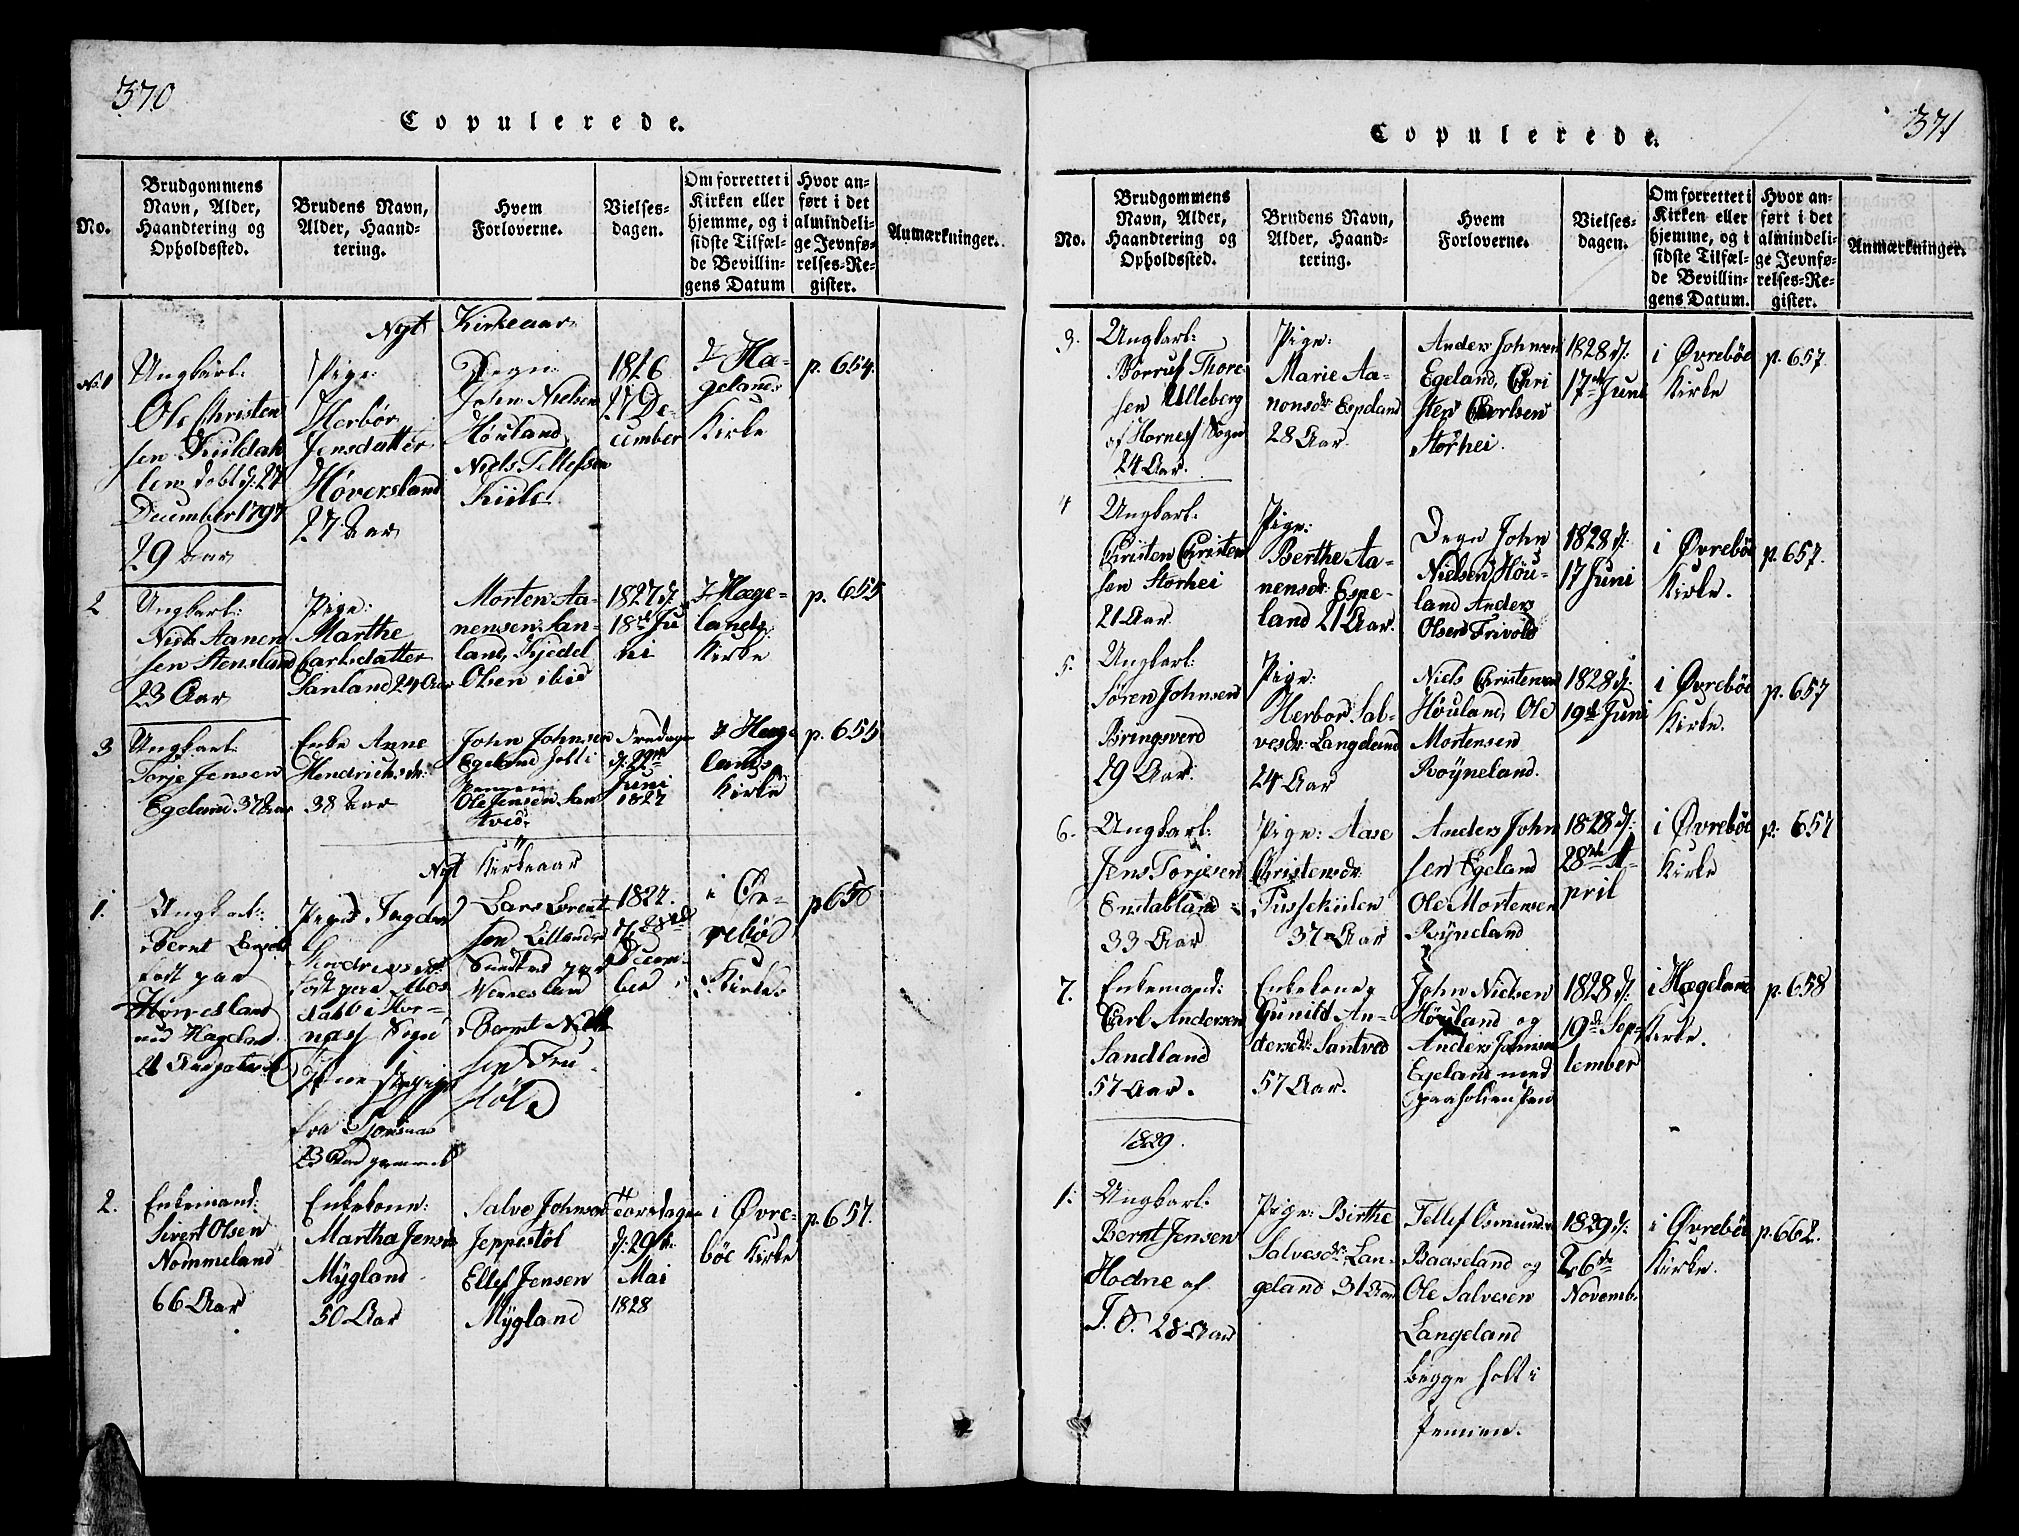 370
Copulerede.
No.
Brudgommens
Navn, Alder,
Haandtering og
Opholdssted.
Brudens Navn,
Alder, Haand-
tering.
Hvem
Forloverne.
Vielses-
dagen.
Om forrettet i
Kirken eller
hjemme, og i
sidste Tilfæl-
de Bevillin-
gens Datum
Hvor an-
ført i det
almindeli-
ge Jevnfø-
relses-Re-
gister.
Anmærkninger.
Nyt Kirkeaar
No. 1
Ungkarl:
Ole Christen
sen Kuldah
len døbt d: 27
December 1797
29 Aar
Pige:
Herbor
Jensdatter
Høversland
27 Aar
Degn
John Nielsen
Høuland
Niels Tellefsen
Kiile
1826
27 De-
cember
i Hæ-
gelands
Kirke
p. 654
2
Ungkarl:
Niels Aanen
sen Stensland
23 Aar
Pige:
Marthe
Carlsdatter
Sanland 24 Aar
Morten Aa-
nensen San-
land, Kjedel
Olsen ibid
1827 d.
18de Ju
ni
i Hæge-
lands
Kirke
p. 655
3
Ungkarl:
Torje Jensen
Egeland 37 Aar
Enke Anne
Hendrichsdr:
38 Aar
John Johnsen
Egeland solt i
Ole Jensen San
tved.
Fredagen
d. 22de
Juni
1827
i Hæge
lands
Kirke
p. 655
Nyt Kirkeaar
1.
Ungkarl:
Bernt
født paa
Horresland
ved Hageland
Pigen Inger
født paa
i Hor-
nass Sogn
Lars Lorent
sen
Bernt
sen
1827.
d. 28de
Decem
ber
i Øv-
rebøe
Kirke
p 656
2.
Enkemand:
Sivert Olsen
Nommeland
66 Aar
Enkekone:
Martha Jensdr
Mÿgland
50 Aar
Salve Johnsen
Jeppestøl
Ellef Jensen
Mÿgland
Torsdagen
d: 29de
Mai
1828
i Øvre-
bøe Kirke
p. 657.
371
Copulerede.
No.
Brudgommens
Navn, Alder,
Haandtering og
Opholdssted.
Brudens Navn,
Alder, Haand-
tering.
Hvem
Forloverne.
Vielses-
dagen.
Om forrettet i
Kirken eller
hjemme, og i
sidste Tilfæl-
de Bevillin-
gens Datum.
Hvor an-
ført i det
almindeli-
ge Jevnfø-
relses-Re-
gister.
Anmærkninger.
3.
Ungkarl:
Thore
sen Ulleberg
af Hornes Sogn
24 Aar.
Pige:
Marie Aa-
nonsdr Espeland
28 Aar.
Anders Johnsen
Egeland, Chri
sten Carlsen
Storhei.
1828 d:
17de Juni
i Øvrebøe
Kirke
p. 657.
4
Ungkarl:
Christen Christen
sen Storhei
21 Aar.
Pige:
Berthe Aa-
nensdr: Espe-
land 21 Aar.
Degn John
Nielsen Høu-
land Anders
Olsen Frivold
1828 d.
17 Juni
i Øvrebøe
Kirke.
p. 657.
5.
Ungkarl:
Søren Johnsen
Bringsverd
29 Aar.
Pige:
Herbor Sal-
vesdr: Langeland
24 Aar
Niels Christensen
Høuland, Ole
Mortensen
Røyneland.
1828 d:
19de Juni
i Øvrebøe
Kirke.
p. 657
6.
Ungkarl:
Jens Torjesen
Eustabland
33 Aar
Pige: Aase
Christensdr
Tusskiilen
37 Aar
Anders John
sen Egeland
Ole Mortensen
Røyneland
1828 d:
28de A-
pril
i Øvrebøe
Kirke
p: 657
7.
Enkemand:
Carl Andersen
Sandland
57 Aar.
Enkekone
Gunild An-
dersdr: Santved
57 Aar.
John Nielsen
Høuland og
Anders Johnsen
Egeland med
1828 d:
19de Sep-
tember
i Hægeland
Kirke.
p. 658
1829.
1.
Ungkarl:
Bernt Jensen
Hodne af
T. O. 28 Aar
Pige: Birthe
Salvesdr: Lan-
geland 31 Aar
Tellef Osmunds
Baaseland og
Ole Salvesen
Langeland
begge solt i
Pennen.
1829 d:
26de
Novemb.
i Øvrebøe
Kirke.
p. 662.